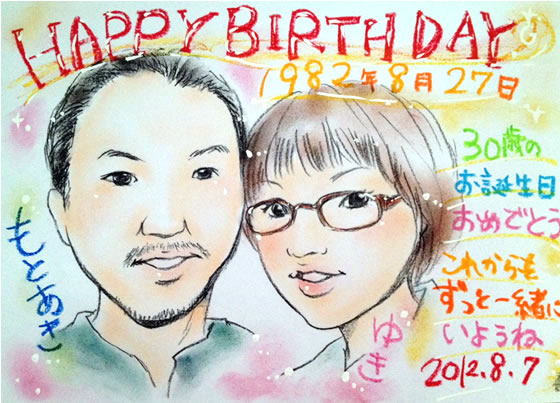 HAPPY BIRTH DAY
1982年8月27日
30歳の
お誕生日
おめでとう
これからも
ずっと一緒に
いようね
2012.8.7
もとあき
ゆき